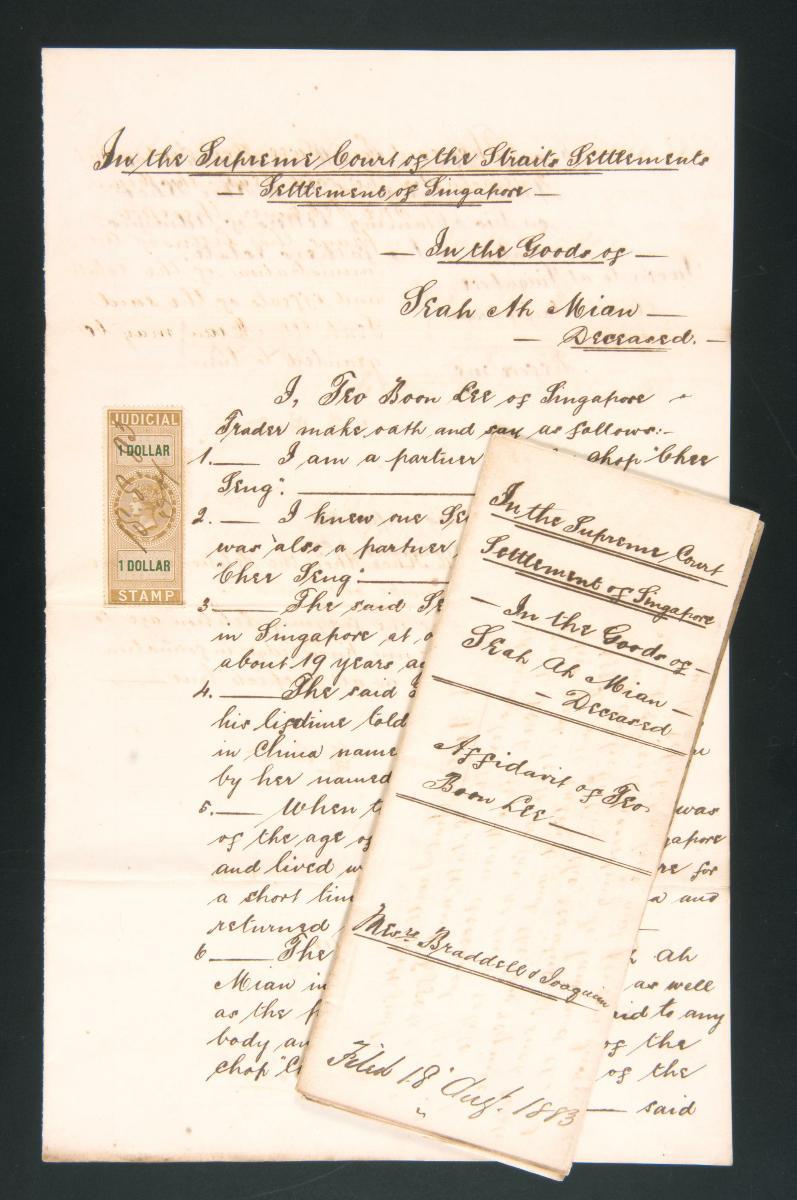 In the Supreme Court of the Straits Settlements
— Settlement of Singapore —
— In the Goods of —
Seah Ah Mian —
— Deceased. —
I, Teo Boon Lee of Singapore
Trader make oath and say as follows:-
1. — I am a partner chop "Chee
Seng". —
2. — I knew one
was also a partner
"Chee Seng" —
3 — The said
in Singapore at
about 19 years
4. — The said
his lifetime told
in China name
by her named
5. — When was
of the age of
and lived for
a short and
returned —
6 — The Ah
Mian in as well
as the to any
body of the
chop of the
— said
JUDICIAL
1 DOLLAR
1 DOLLAR
STAMP
In the Supreme Court
Settlement of Singapore
— In the Goods of —
Seah Ah Mian —
— Deceased
Affidavit of Teo
Boon Lee —
Messrs Braddell & Joaquim
Filed 18 Augt. 1883